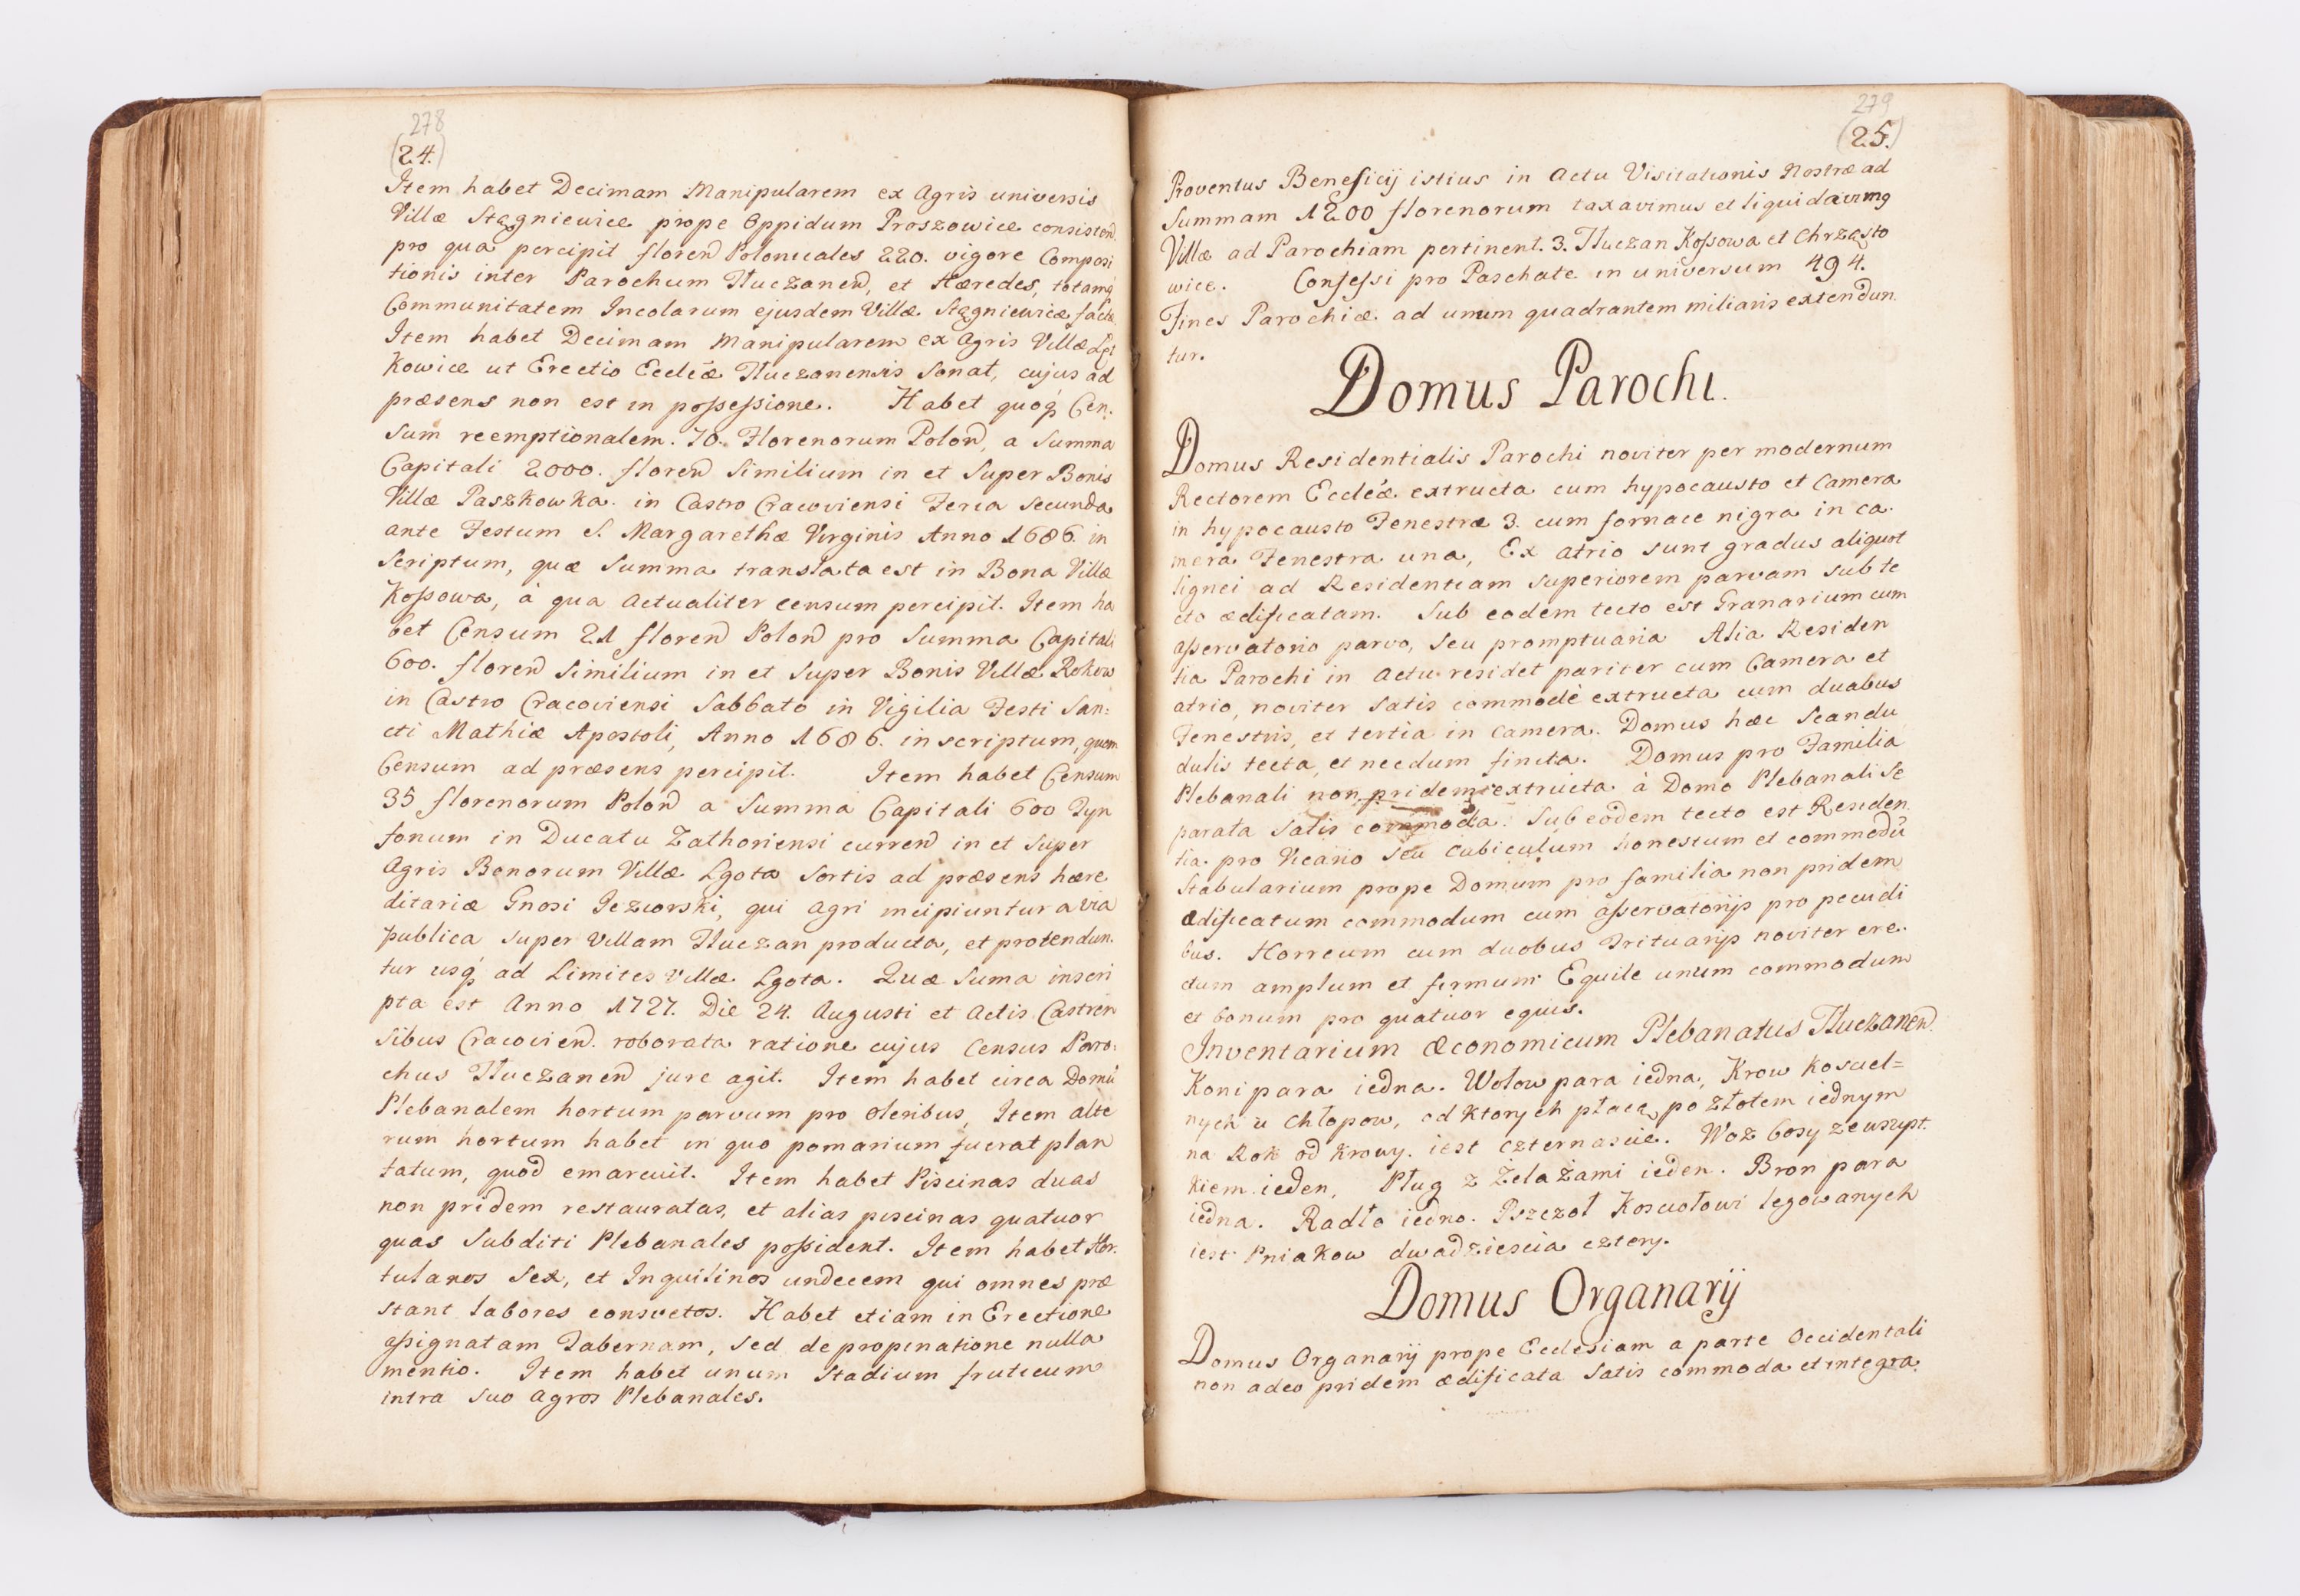 278
(24.)
Item habet Decimam Manipularem ex Agris universis
Villæ Stągniewice prope Oppidum Proszowice consistend.
pro qua percipit floren Polonicales 220. vigore Composi
tionis inter Parochum Tłuczanen, et Hæredes, totamq
Communitatem Incolarum ejusdem Villæ Stągniewice factæ
Item habet Decimam Manipularem ex Agris Villæ Lęt
kowice ut Erectio Eccleæ Tłuczanensis Sonat, cujus ad
præsens non est in possessione. Habet quoq Cen.
sum reemptionalem. 70. Florenorum Polon, a Summa
Capitali 2000. floren Similium in et Super Bonis
Villæ Paszkowka. in Castro Cracoviensi Feria Secunda
ante Festum S. Margarethæ Virginis Anno 1686. in
Scriptum, quæ Summa translata est in Bona Villæ
Kossowa, à qua Actualiter censum percipit. Item ha
bet Censum 21 floren Polon pro Summa Capitali
600. floren Similium in et Super Bonis Villæ Rokow
in Castro Cracoviensi Sabbato in Vigilia Festi San:
cti Mathiæ Apostoli, Anno 1686. inscriptum, quem
Censum ad præsens percipit. Item habet Censum
35 florenorum Polon a Summa Capitali 600 Tyn
fonum in Ducatu Zathoriensi curren in et Super
Agris Bonorum Villæ Lgota Sortis ad præsens hære
ditariæ Gnosi Jeziorski, qui Agri incipiuntur a via
publica super Villam Tłuczan producta, et protendun.
tur usq ad Limites Villæ Lgota. Quæ Suma inscri
pta est Anno 1727. Die 24. Augusti et Actis Castren
sibus Cracovien. roborata ratione cujus Census Paro:
chus Tłuczanen jure agit. Item habet circa Domū
Plebanalem hortum parvum pro Oleribus, Item alte
rum hortum habet in quo pomarium fuerat plan
tatum, quod emarcuit. Item habet Piscinas duas
non pridem restauratas, et alias piscinas quatuor
quas Subditi Plebanales possident. Item habet Hor.
tulanos Sex, et Inquilinos undecem qui omnes præ
stant labores consvetos. Habet etiam in Erectione
assignatam Tabernam, sed de propinatione nulla
mentio. Item habet unum Stadium fruticum
intra suo Agros Plebanales.
279
(25.)
Proventus Beneficij istius in Actu Visitationis Nostræ ad
Summam 1200 florenorum taxavimus et liquidavimq
Villæ ad Parochiam pertinent. 3. Tłuczan Kossowa et Chrząsto
wice. Confessi pro Paschate in universum 494.
Fines Parochiæ ad unum quadrantem miliaris extendun.
tur.
Domus Parochi.
Domus Residentialis Parochi noviter per modernum
Rectorem Eccleæ extructa cum hypocausto et Camera
in hypocausto Fenestræ 3. cum fornace nigra in ca.
mera Fenestra una, Ex atrio sunt gradus aliquot
lignei ad Residentiam Superiorem parvam sub te
cto ædificatam. Sub eodem tecto est Granarium cum
asservatorio parvo, seu promptuaria Alia Residen
tia Parochi in Actu residet pariter cum Camera et
atrio, noviter satis commodè extructa cum duabus
Fenestris, et tertia in Camera. Domus hæc Scandu
dulis tecta, et necdum finita. Domus pro Familia
Plebanali non pridem extructa à Domo Plebanali Se
parata Satis commoda. Sub eodem tecto est Residen
tia pro Vicario seu cubiculum honestum et commodū
Stabularium prope Domum pro familia non pridem
Ædificatum commodum cum asservatorijs pro pecudi
bus. Horreum cum duobus Trituarijs noviter ere.
ctum amplum et firmum Equile unum commodum
et bonum pro quatuor equis.
Inventarium Œconomicum Plebanatus Tłuczanen.
Koni para iedna. Wołow para iedna, Krow Kosciel=
nych u Chłopow, od Ktorych płacą po złotem iednym
na Rok od Krowy. iest czternascie. Woz bosy ze wszyst.
kiem ieden, Pług z Zelażami ieden. Bron para
iedna. Radło iedno. Pszczoł Kosciołowi legowanych
iest Pniakow dwadziescia cztery.
Domus Organarij
Domus Organarij prope Ecclesiam a parte Occidentali
non adeo pridem ædificata Satis commoda et integra.